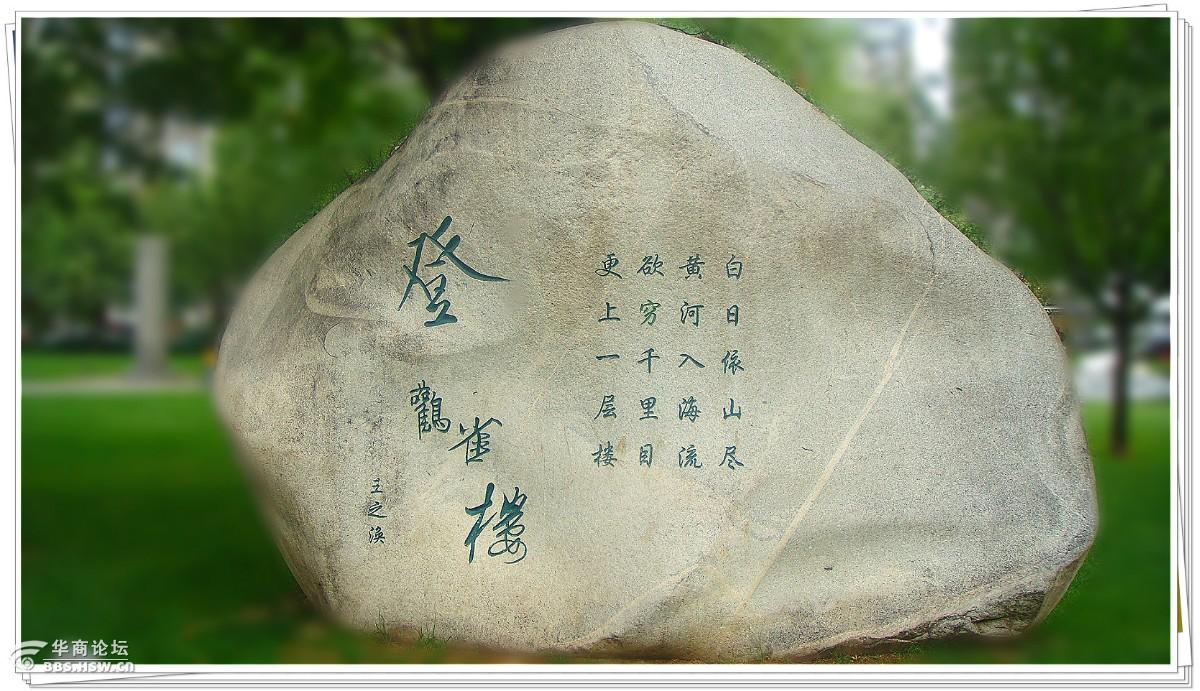 白日依山尽
黄河入海流
欲穷千里目
更上一层楼
登鸛雀樓
王之涣
华商论坛
BBS.HSW.CN